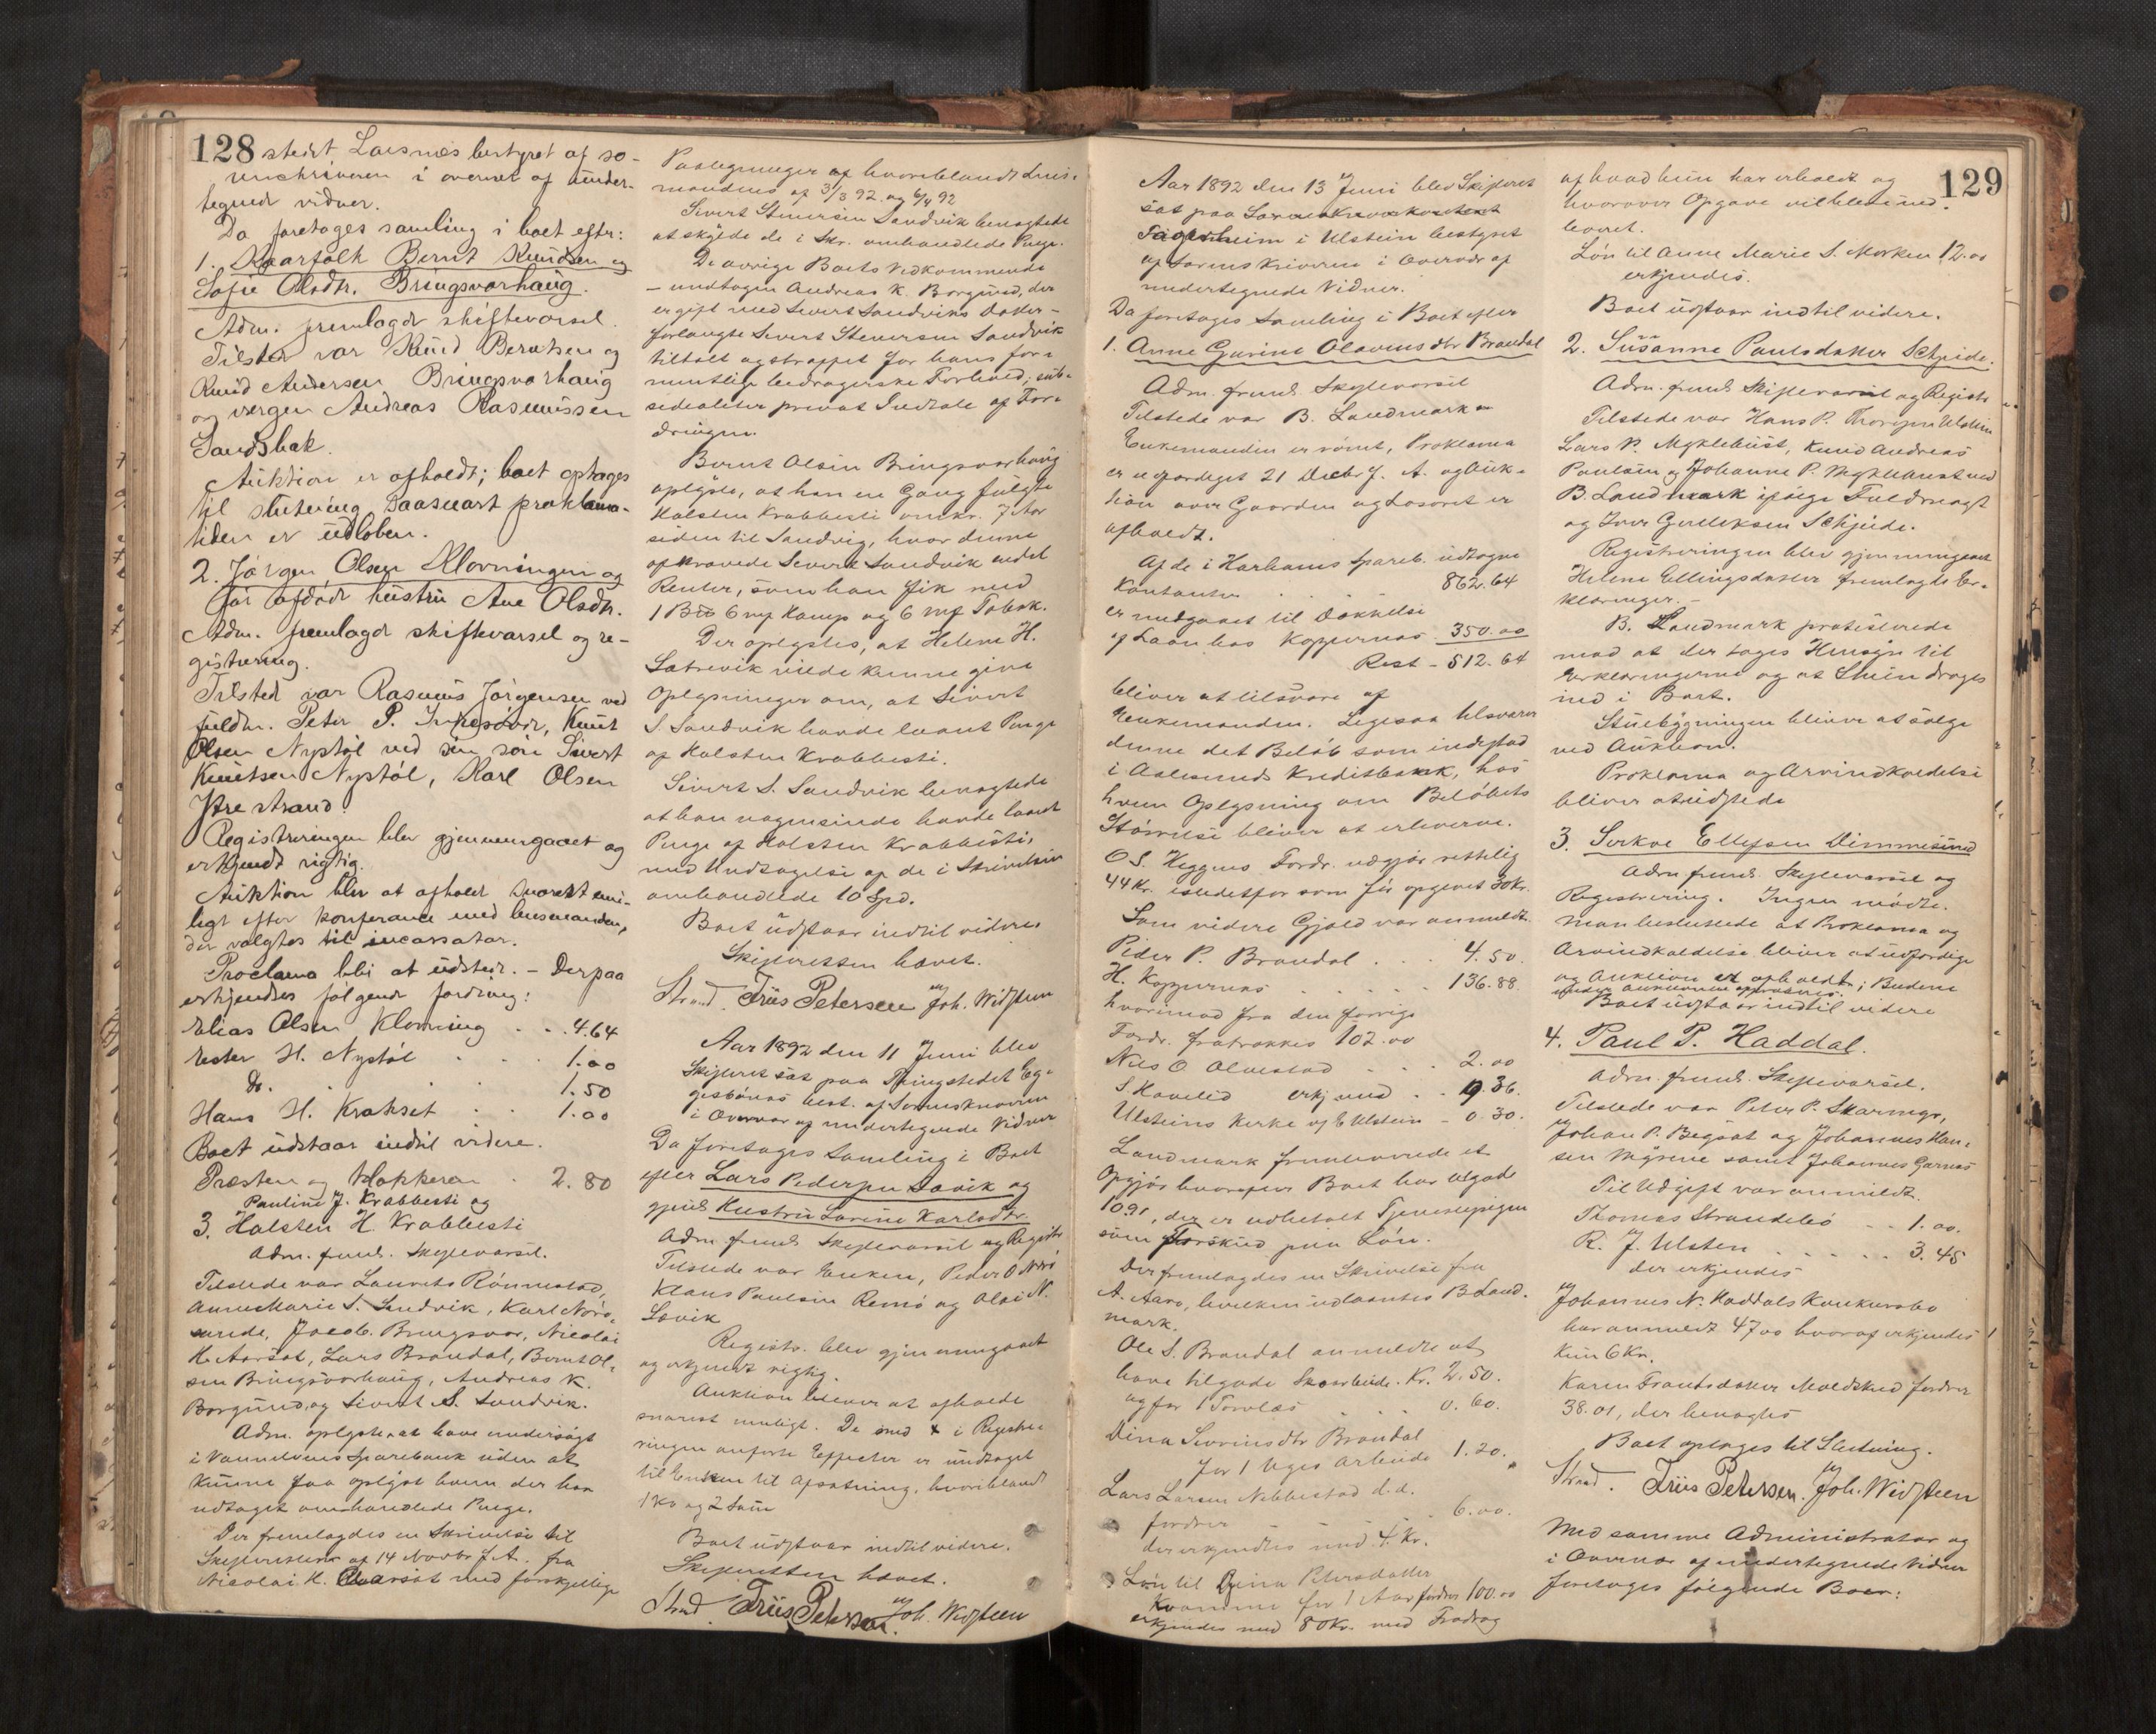 128 stedet Larsnes bestyret af so-
renskriveren i overvær af under-
tegned vidner.
Da foretages samling i boet efter:
1. Kaarfolk Bernt Knudsen og
Sofie Olsdtr. Bringsvorhaug.
Adm. fremlagde skiftevarsel.
Tilsted var Knud Berntsen og
Knud Andersen Bringsvorhaug
og vergen Andreas Rasmussen
Sandsbak.
Auktion er afholdt; boet optages
til slutning saasnart proklama-
tiden er udløben.
2. Jørgen Olsen Klovningen og
før afdøde hustru Ane Olsdtr.
Adm. fremlagde skiftevarsel og re-
gistrering.
Tilsted var Rasmus Jørgensen ved
fuldm. Peter P. Knut
Olsen Nystøl ved sin søn Sivert
Knutsen Nystøl, Karl Olsen
Ytrestrand.
Registreringen blev gjennemgaaet og
erkjendt rigtig.
Auktion blir at afholde snarest mu-
ligt efter konferance med lensmanden,
der valgtes til incassator.
Proclama bli at udsted. - Derpaa
erkjendtes følgende fordring:
Elias Olsen Klovning . . 4.64
Ester H. Nystøl . . 1.00
Do. . . . 1.50
Hans H. Krakset . . 1.00
Boet udstaar indtil videre.
Præsten og klokkeren . 2.80
Pauline J. Krabbesti og
3. Halsten H. Krabbesti
Adm. freml. Skiftevarsel.
Tilstede var Laurits Rønnestad,
Anne Marie S. Sandvik, Karl Nord-
sunde, Jacob Bringsvor, Nicolai
H. Aarsæt, Lars Brandal, Bernt Ol-
sen Bringsvorhaug, Andreas K.
Borgund og Sivert S. Sandvik.
Adm. oplyste at have undersøgt
i Vannelvens Sparebank uden at
kunne faa oplyst hvem der har
udtaget omhandlede Penge.
Der fremlagdes en Skrivelse til
Skifteretten af 14 Novbr f. A. fra
Nicolai H. Aarsæt med forskjellige
Paategninger af hvoriblandt Lens-
mandens af 3/3 92 og 6/4 92
Sivert Stenersen Sandvik benægtede
at skylde de i Skr. omhandlede Penge.
De øvrige Boets Vedkommende
- undtagen Andreas K. Borgund, der
er gift med Sivert Sandviks Datter -
forlangte Sivert Stenersen Sandvik
tiltalt og straffet for hans for-
mentlige bedragerske Forhold, sub-
sidealiter privat Indtale af For-
dringen.
Bernt Olsen Bringsvorhaug
oplyste, at han en Gang fulgte
Halsten Krabbesti omkr. 7 Aar
siden til Sandvig, hvor denne
afkrævede Sivert Sandvik endel
Renter, som han fik med
1 6 mk Hamp og 6 mk Tobak.
Der oplystes, at Helene H.
Sætrevik vilde kunne give
Oplysninger om, at Sivert
S. Sandvik havde laant Penge
af Halsten Krabbesti.
Sivert S. Sandvik benægtede
at han nogensinde havde laant
Penge af Halsten Krabbesti,
med Undtagelse af de i Skrivelsen
omhandlede 10 Spd.
Boet udstaar indtil videre
Skifteretten hævet.
Strand. Friis Petersen Joh. Widsteen
Aar 1892 den 11 Juni blev
Skifteret sat paa Thingstedet Eg-
gesbønes best. af Sorenskriveren
i Overvær af undertegnede Vidner
Da foretages Samling i Boet
efter Lars Pedersen Søvik og
gjenl. Hustru Karlsdtr.
Adm. freml. Skiftevarsel og Registr.
Tilstede var Enken, Peder O
Klaus Paulsen Remø og Olai N.
Søvik
Registr. blev gjennemgaaet
og erkjendt rigtig.
Auktion bliver at afholde
snarest muligt. De med x i Registre-
ringen anførte Effecter er undtaget
til Enken til Afsætning, hvoriblandt
1 Ko og 2 Sauer
Boet udstaar indtil videre.
Skifteretten hævet.
Strand. Friis Petersen. Joh. Widsteen
129
Aar 1892 den 13 Juni blev Skifteret
sat paa Sorenskriverkontoret
Fagerheim i Ulstein bestyret
af Sorenskriveren i Overvær af
undertegnede Vidner.
Da foretages Samling i Boet efter
1. Anne Gurine Olavensdtr Brandal
Adm. freml. Skiftevarsel
Tilstede var B. Landmark
Enkemanden er rømt, Proklama
er udfærdiget 21 Decbr f. A. og Auk-
tion over Gaarden og Løsøret er
afholdt.
Af de i Harhams Spareb. udtagne
Kontanter . . . 862.64
er medgaaet til Dækkelse
af Laan hos Koppernæs 350.00
Rest - 512.64
bliver at tilsvare af
Enkemanden. Ligesaa tilsvarer
denne det Beløb som indestod
i Aalesunds Kreditbank, hos
hvem Oplysning om Beløbets
Størrelse bliver at erhverve.
O S. Heggens Fordr. udgjør rettelig
44 Kr. istedetfor som før opgivet 30 Kr.
Som videre Gjæld var anmeldt.
Peder P. Brandal . . . 4.50.
H. Koppernæs . . . . 136.88.
hvorimod fra den forrige
Fordr. fratrækkes 102.00
Nils O Alvestad . . . 2.00
S. Haveled erkjend . . 9.36.
Ulsteins Kirke af E Ulstein - 0.30.
Landmark fremleverede et
Opgjør hvorefter Boet har tilgode
10.91, der er udbetalt Tjenestepigen
som Forskud paa Løn.
Der fremlagdes en Skrivelse fra
A. Aarø, hvilken udlaantes B Land-
mark.
Ole S. Brandal anmeldte at
have tilgode Skoarbeide. Kr. 2.50.
og for 1 Torvlæs . . . 0.60.
Dina Severinsdtr Brandal
for 1 Uges Arbeide 1.20.
Lars Larsen Nebbestad d.d.
fordrer . . . . 6.00.
der erkjendtes med 4 Kr.
Løn til Petersdatter
Kvamme for 1 Aar fordrer 100.00
erkjendes med 80 Kr. med Fradrag
af hvad hun har erholdt og
hvorover Opgave vil blive ind-
leveret.
Løn til Anne Marie S. Morken 12.00
erkjendes.
Boet udstaar indtil videre.
2. Susanne Paulsdatter Schjeide.
Adm. freml. Skiftevarsel og Registr
Tilstede var Hans P. Ulstein
Lars P. Myklebust, Knud Andreas
Paulsen og Johanne P. Myklebust ved
B. Landmark ifølge Fuldmagt
og Iver Gulleksen Schjeide.
Registreringen blev gjennemgaaet
Helene Ellingsdatter fremlagde Er-
klæringer.-
B. Landmark protesterede
mod at der tages Hensyn til
Erklæringerne og at drages
ind i Boet.
Stuebygningen bliver at sælge
ved Auktion.
Proklama og Arvindkaldelse
bliver at udstede
3. Ellefsen Dimmesund
Adm. freml. Skiftevarsel og
Registrering. Ingen mødte.
Man besluttede at Proklama og
Arvindkaldelse bliver at udfærdige
og Auktion at afholdt; Budene
under Auktionen approbertes.
Boet udstaar indtil videre
4. Paul P. Haddal.
Adm. freml. Skiftevarsel.
Tilstede var Peter P. Skeringe,
Johan P. Bigsæt og Johannes Han-
sen Myrene samt Johannes Garnes
Til Udgift var anmeldt.
Thomas Strandebø - - 1.00.
R. J. Ulsten . . . . . 3.45
der erkjendes
Johannes N. Haddals Konkursbo
har anmeldt 47.00 hvoraf erkjendes
kun 6 Kr.
Karen Frantsdatter Moldskred fordrer
38.01, der benægtes
Boet optages til Slutning.
Strand. Friis Petersen. Joh. Widsteen
Med samme Administrator og
i Overvær af undertegnede Vidner
foretages følgende Boer: